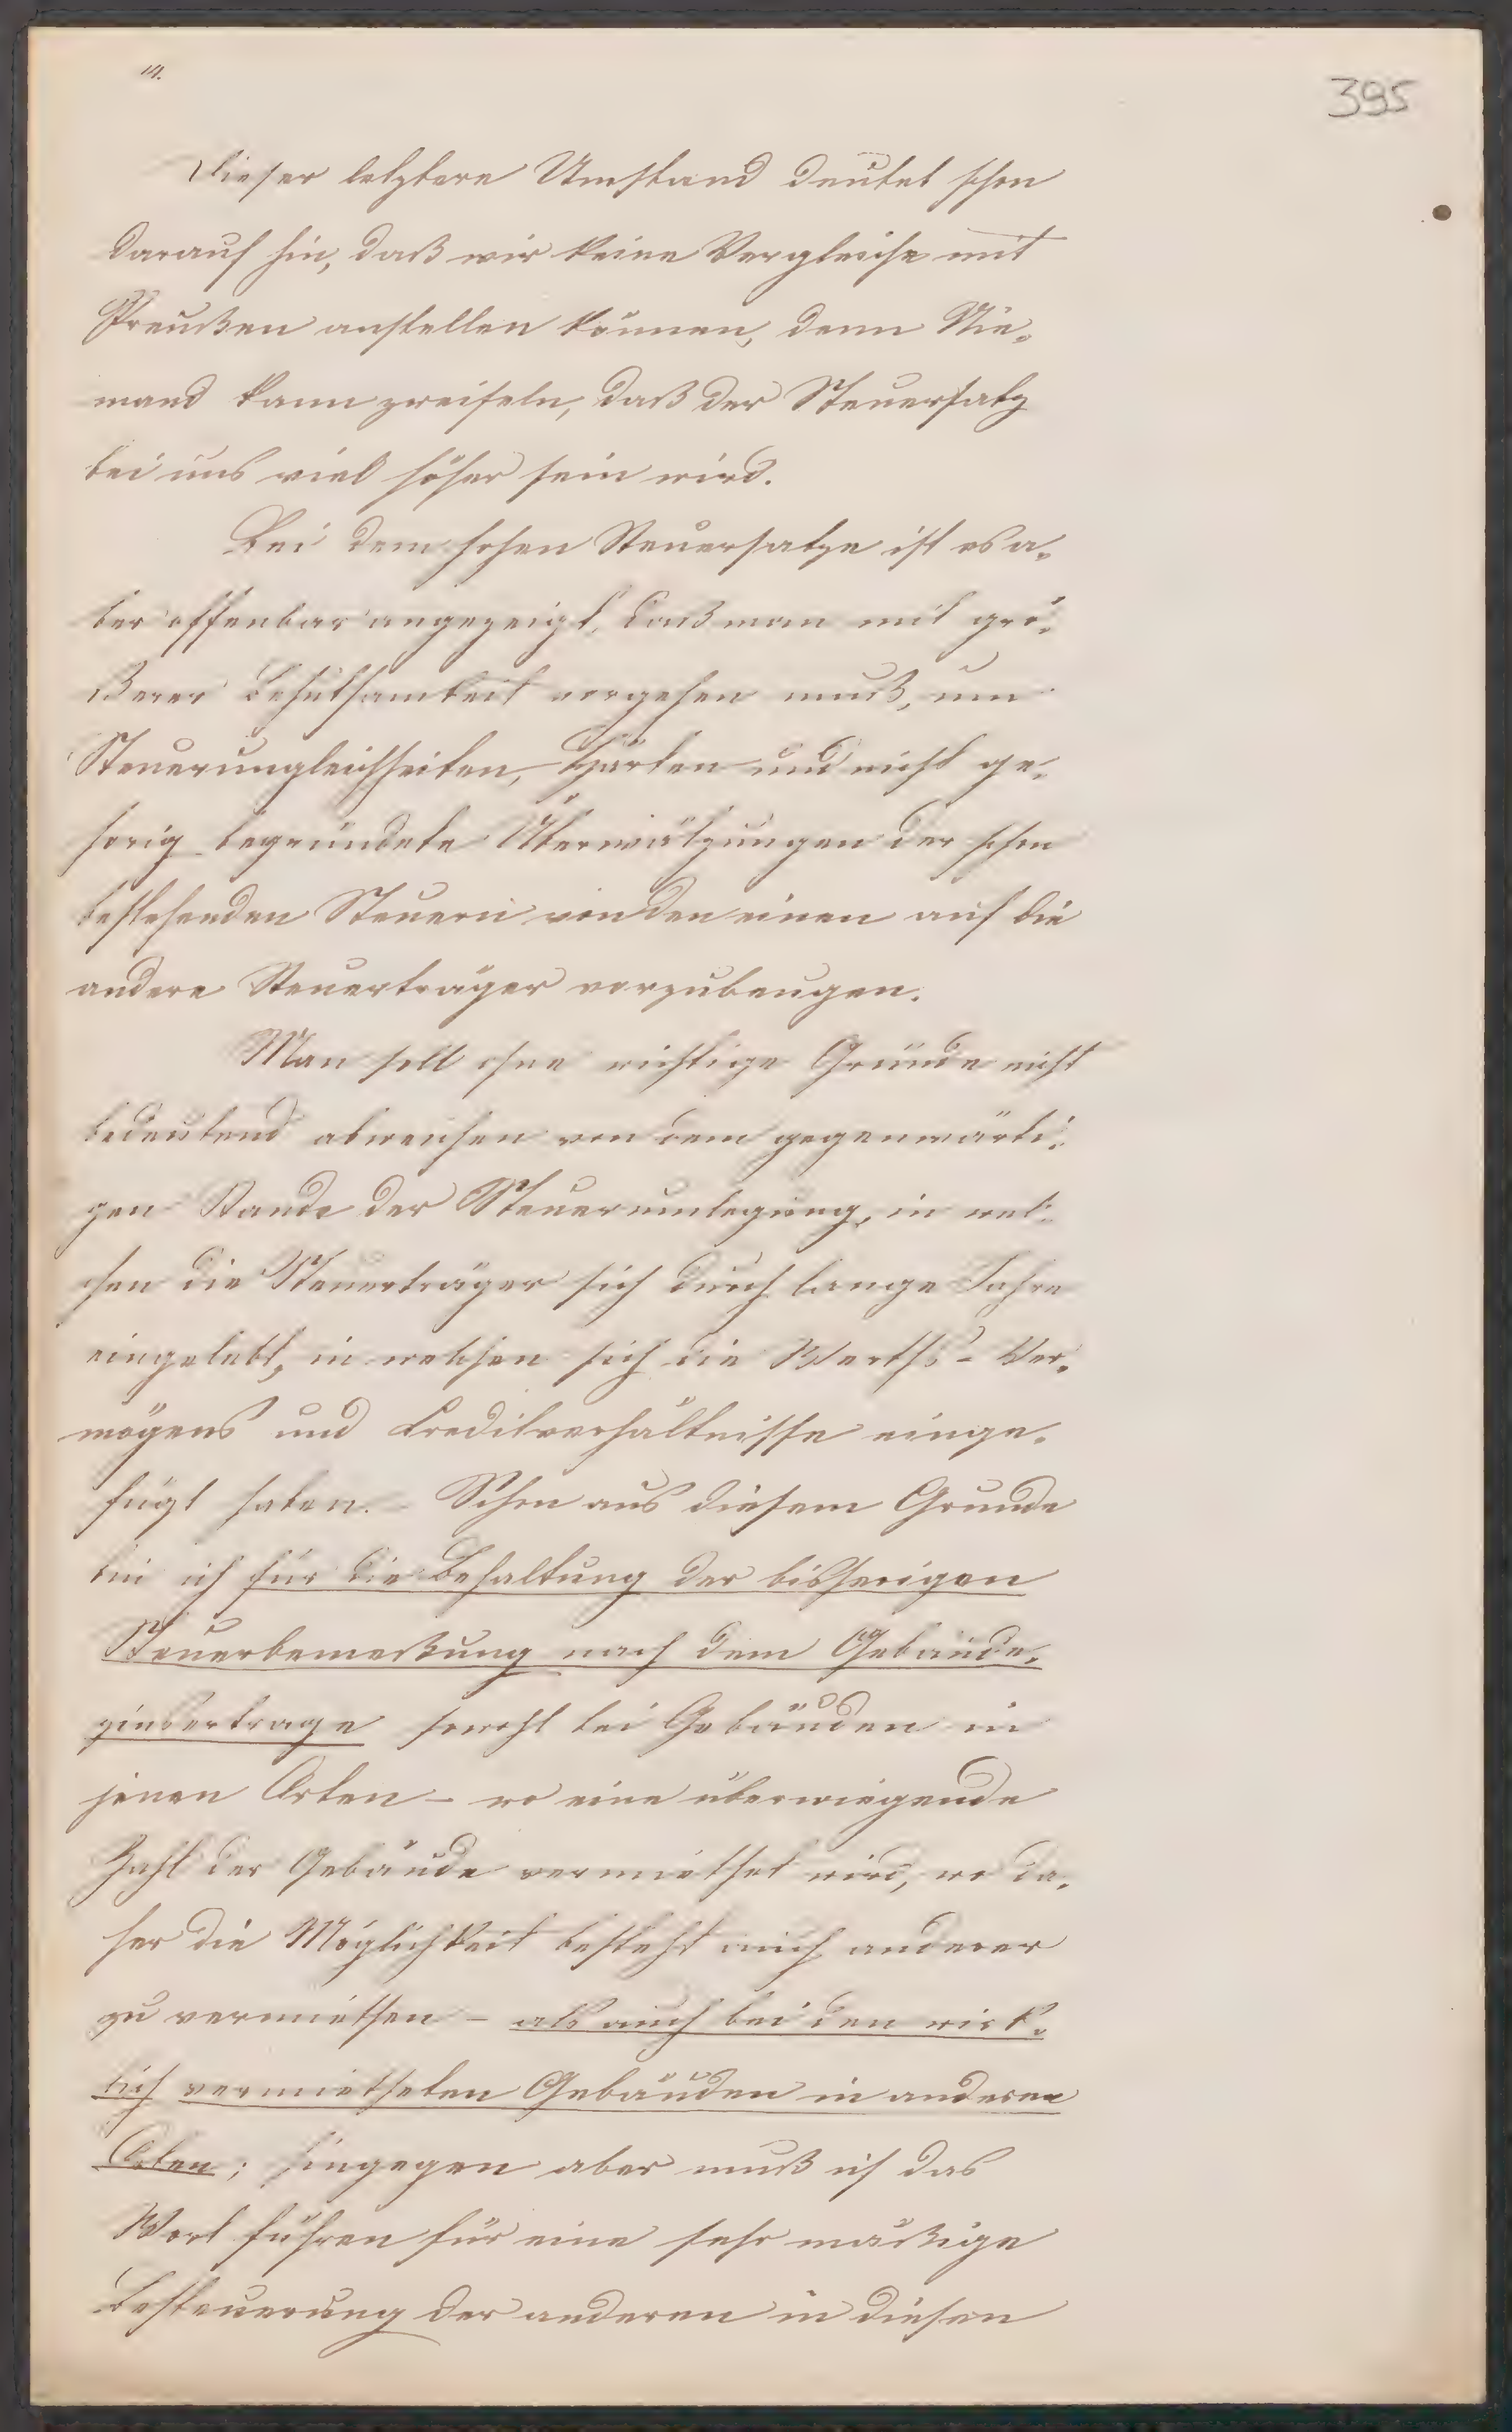 14.
395
Dieser letztere Umstand deutet schon
darauf hin, daß wir keine Vergleiche mit
Preußen anstellen können, denn Nie-
mand kann zweifeln, daß der Steuersatz
bei uns viel höher sein wird.
Bei dem hohen Steuersatze ist es a-
ber offenbar angezeigt, daß man mit grö-
ßerer Behutsamkeit vorgehen muß, um
Steuerungleichheiten, Härten und nicht ge-
hörig begründete Überwälzungen der schon
bestehenden Steuern von den einen auf die
andere Steuerträger vorzubeugen.
Man soll ohne wichtige Gründe nicht
bedeutend abweichen von dem gegenwärti-
gen Stande der Steuerumlegung, in wel-
chen die Steuerträger sich durch lange Jahre
eingelebt, in welchen sich die Werths- Ver-
mögens und Creditverhältnisse einge-
fügt haben. Schon aus diesem Grunde
bin ich für die Behaltung der bisherigen
Steuerbemeßung nach dem Gebäude-
zinsertrage sowohl bei Gebäuden in
jenen Orten – wo eine überwiegende
Zahl der Gebäude vermiethet wird, wo da-
her die Möglichkeit besteht auch anderer
zu vermiethen – als auch bei den wirk-
lich vermietheten Gebäuden in anderen
Orten; hingegen aber muß ich das
Wort führen für eine sehr mäßige
Besteuerung der anderen in diesen